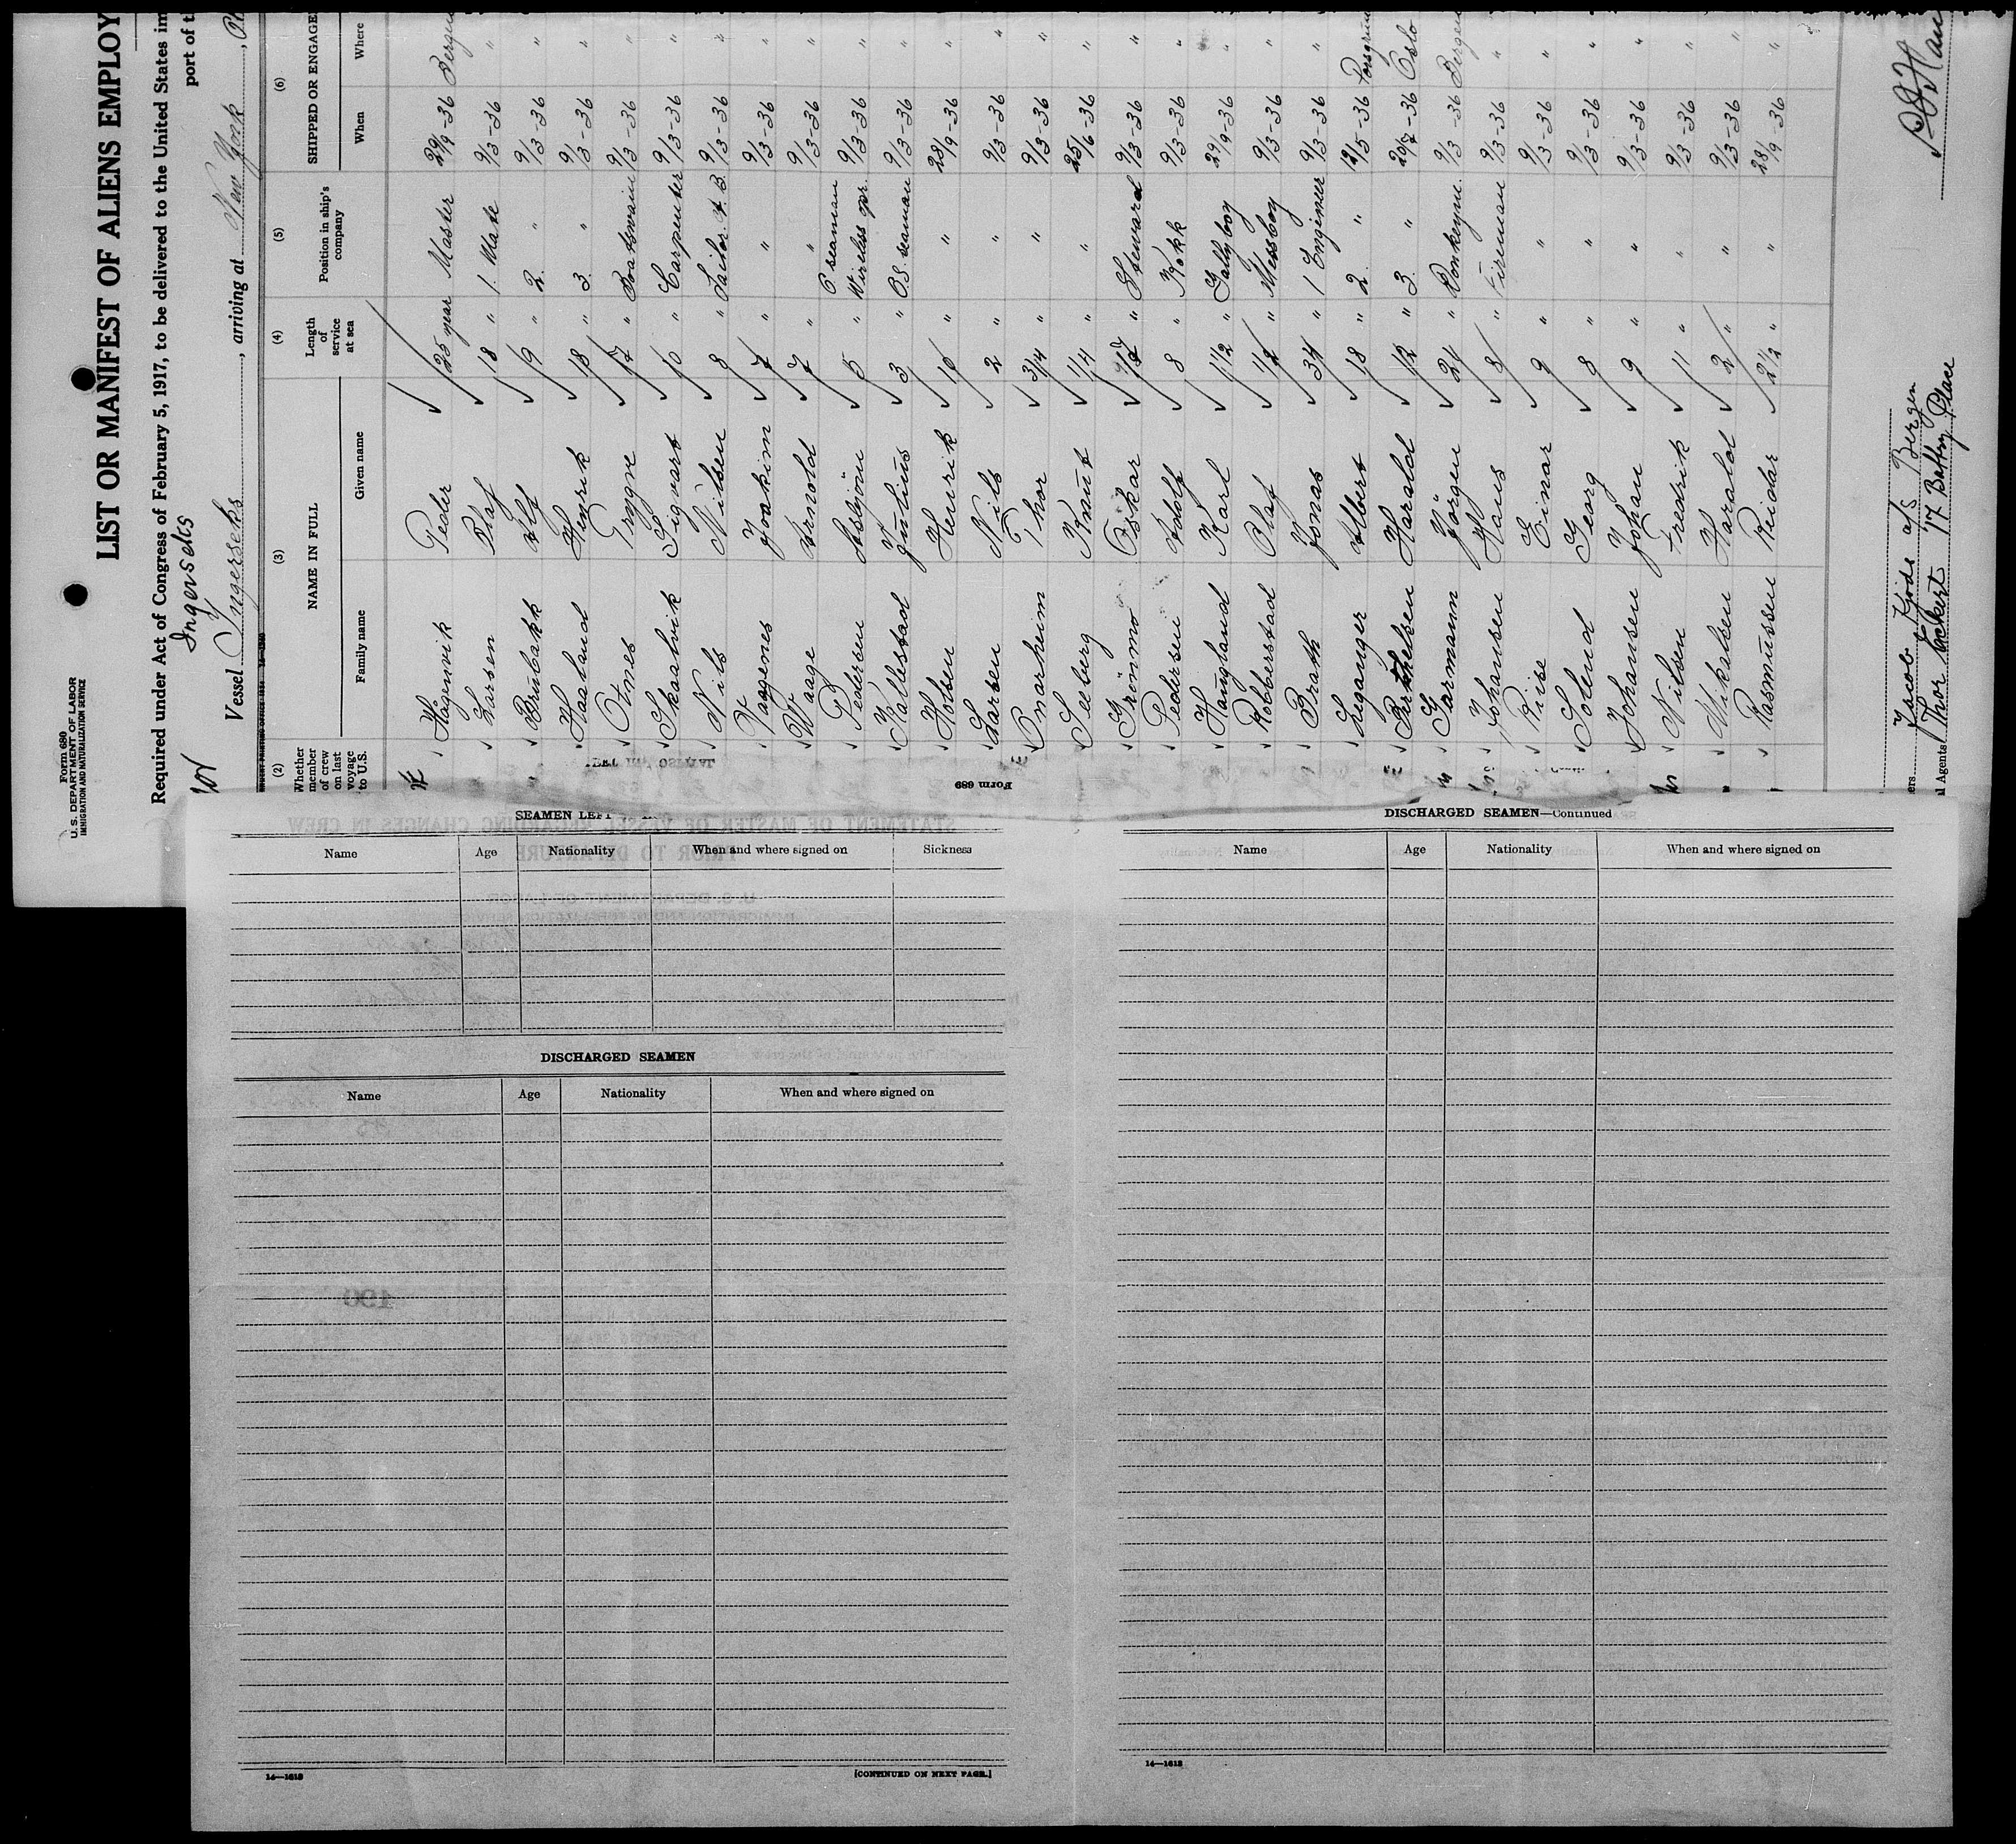 Form 680
U. S. DEPARTMENT OF LABOR
IMMIGRATION AND NATURALIZATION SERVICE
LIST OR MANIFEST OF ALIENS EMPLOY
Required under Act of Congress of February 5, 1917, to be delivered to the United States im
port of t
Ingerseks
Vessel Ingerseks, arriving at New York
(2) (3) (4) (5) (6)
Whether member of crew on last voyage to U.S. NAME IN FULL Length of service at sea Position in ship's company SHIPPED OR ENGAGE
Family name Given name When Where
Hagenvik Peder 25 year Master 29/9-36 Bergen
Larsen Olaf 18 " 1. Mate 9/3-36 "
Brubakk Alf 19 " 2. " 9/3-36 "
Haaland Henrik 18 " 3. " 9/3-36 "
Otnes Trygve 17 " Boatswain 9/3-36 "
Skaalvik Sigvart 10 " Carpenter 9/3-36 "
Nils Nilsen 8 " Sailor A. B. 9/3-36 "
Vaagenes Joakim 7 " " 9/3-36 "
Waage Arnold 7 " " 9/3-36 "
Pedersen Asbjön 5 " O seaman Wireless opr. 9/3-36 "
Kallestad Julius 3 " O.S. seaman 9/3-36 "
Holsen Henrik 10 " " 28/9-36 "
Larsen Nils 2 " " 9/3-36 "
Onarheim Thor 3/4 " " 9/3-36 "
Seeberg Knut 1/4 " " 25/6-36 "
Grömmo Oskar " Steward 9/3-36 "
Pedersen Adolf 8 " Kokk 9/3-36 "
Haugland Karl 1 1/2 " Gallyboy 29/9-36 "
Robberstad Olaf 1 1/2 " Messboy 9/3-36 "
Brath Jonas 34 " 1 Engineer 9/3-36 "
Leganger Albert 18 " 2. " 12/5-36 Porsgrun
Berthelsen Harald 12 " 3. " 20/7-36 Oslo
Garmann Jörgen 21 " Donkeym. 9/3-36 Bergen
Johansen Hans 8 " Fireman 9/3-36 "
Riise Einar 9 " " 9/3-36 "
Solend Georg 8 " " 9/3-36 "
Johansen Johan 9 " " 9/3-36 "
Nilsen Fredrik 11 " " 9/3-36 "
Mikalsen Harald 2 " " 9/3-36 "
Rasmussen Reidar 2 1/2 " " 28/9-36 "
ers Jacob Kjöde a/s Bergen
l Agents Thor Eckert 17 Battery Place
Form 689
SEAMEN LEFT
Name Age Nationality When and where signed on Sickness
DISCHARGED SEAMEN
Name Age Nationality When and where signed on
14—1613 [CONTINUED ON NEXT PAGE.]
DISCHARGED SEAMEN—Continued
Name Age Nationality When and where signed on
14—1613